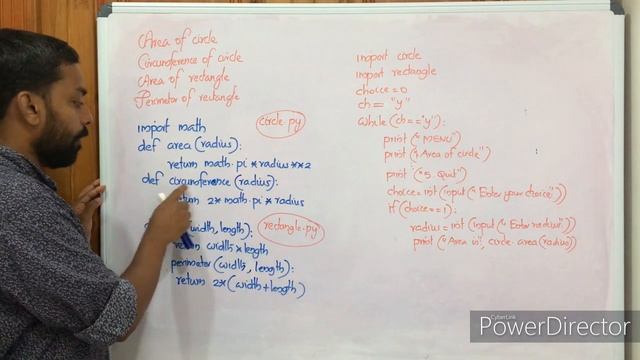 Area of circle
Circumference of circle
Area of rectangle
Perimeter of rectangle
import math
circle.py
def area (radius):
return math.pi * radius**2
def circumference (radius):
return 2* math.pi * radius
(width, length):
rectangle.py
return width * length
perimeter (width, length):
return 2*(width+length)
import circle
import rectangle
choice=0
ch= "y"
while (ch=="y"):
print ("MENU")
print ("1 Area of circle")
print ("5. Quit")
choice=int (input ("Enter your choice"))
if (choice==1):
radius=int (input ("Enter radius"))
print ("Area is", circle.area (radius))
CyberLink
PowerDirector